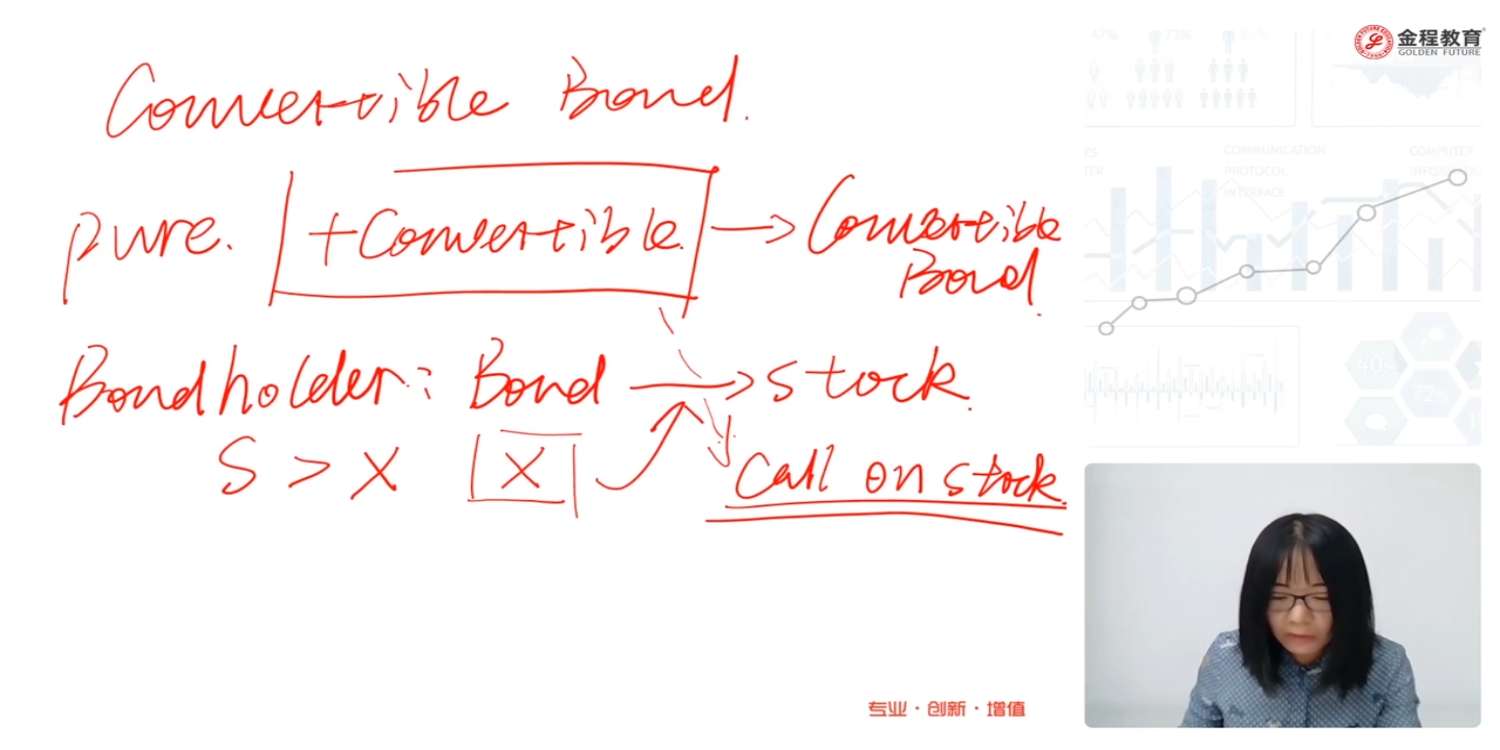 Convertible Bond.
pure. +Convertible. → Convertible Bond.
Bondholder: Bond → stock.
S > X X
call on stock.
金程教育
GOLDEN FUTURE
COMMUNICATION
PROTOCOL
INTERFACE
40%
72%
专业·创新·增值